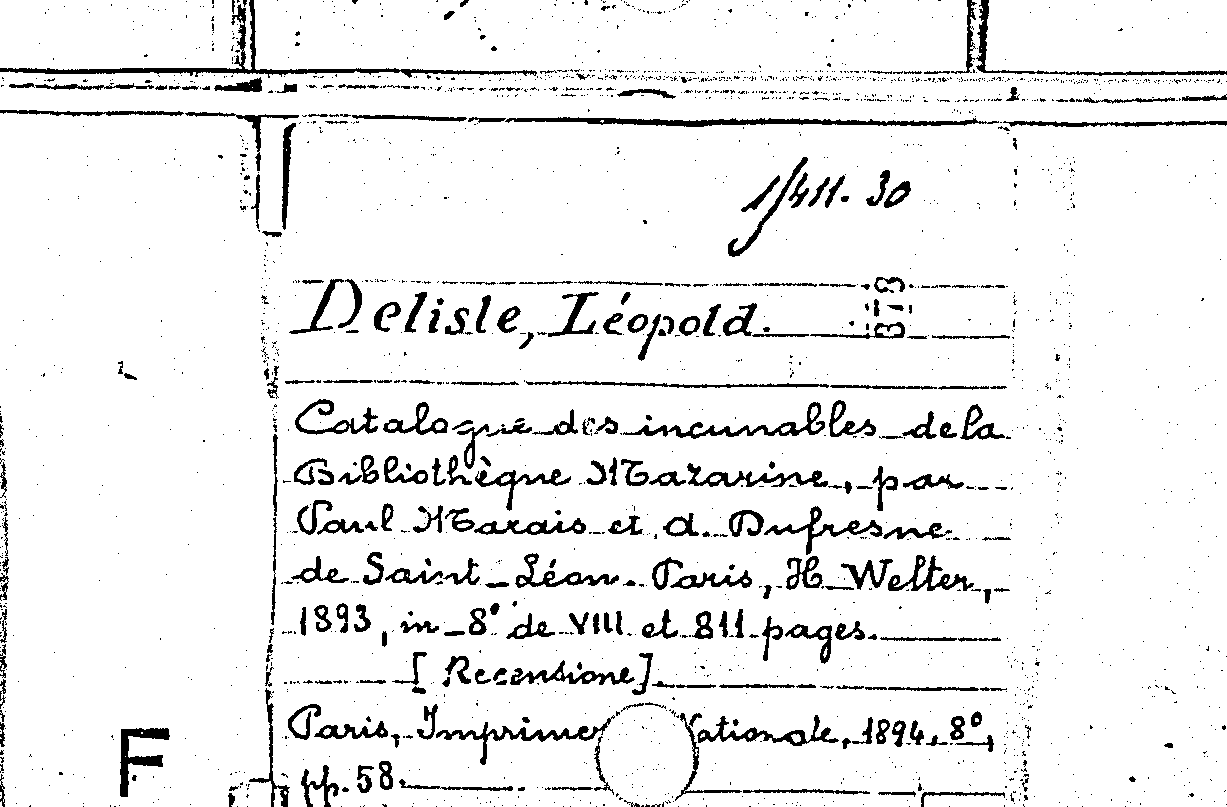 1/411. 30
Delisle, Léopold.
373
Catalogue des incunables de la
Bibliothèque Mazarine, par
Paul Marais et A. Dufresne
de Saint-Léon. Paris, H. Welter,
1893, in-8° de VIII et 811 pages.
[Recensione].
Paris, Imprimer Nationale, 1894, 8°,
pp. 58.
F